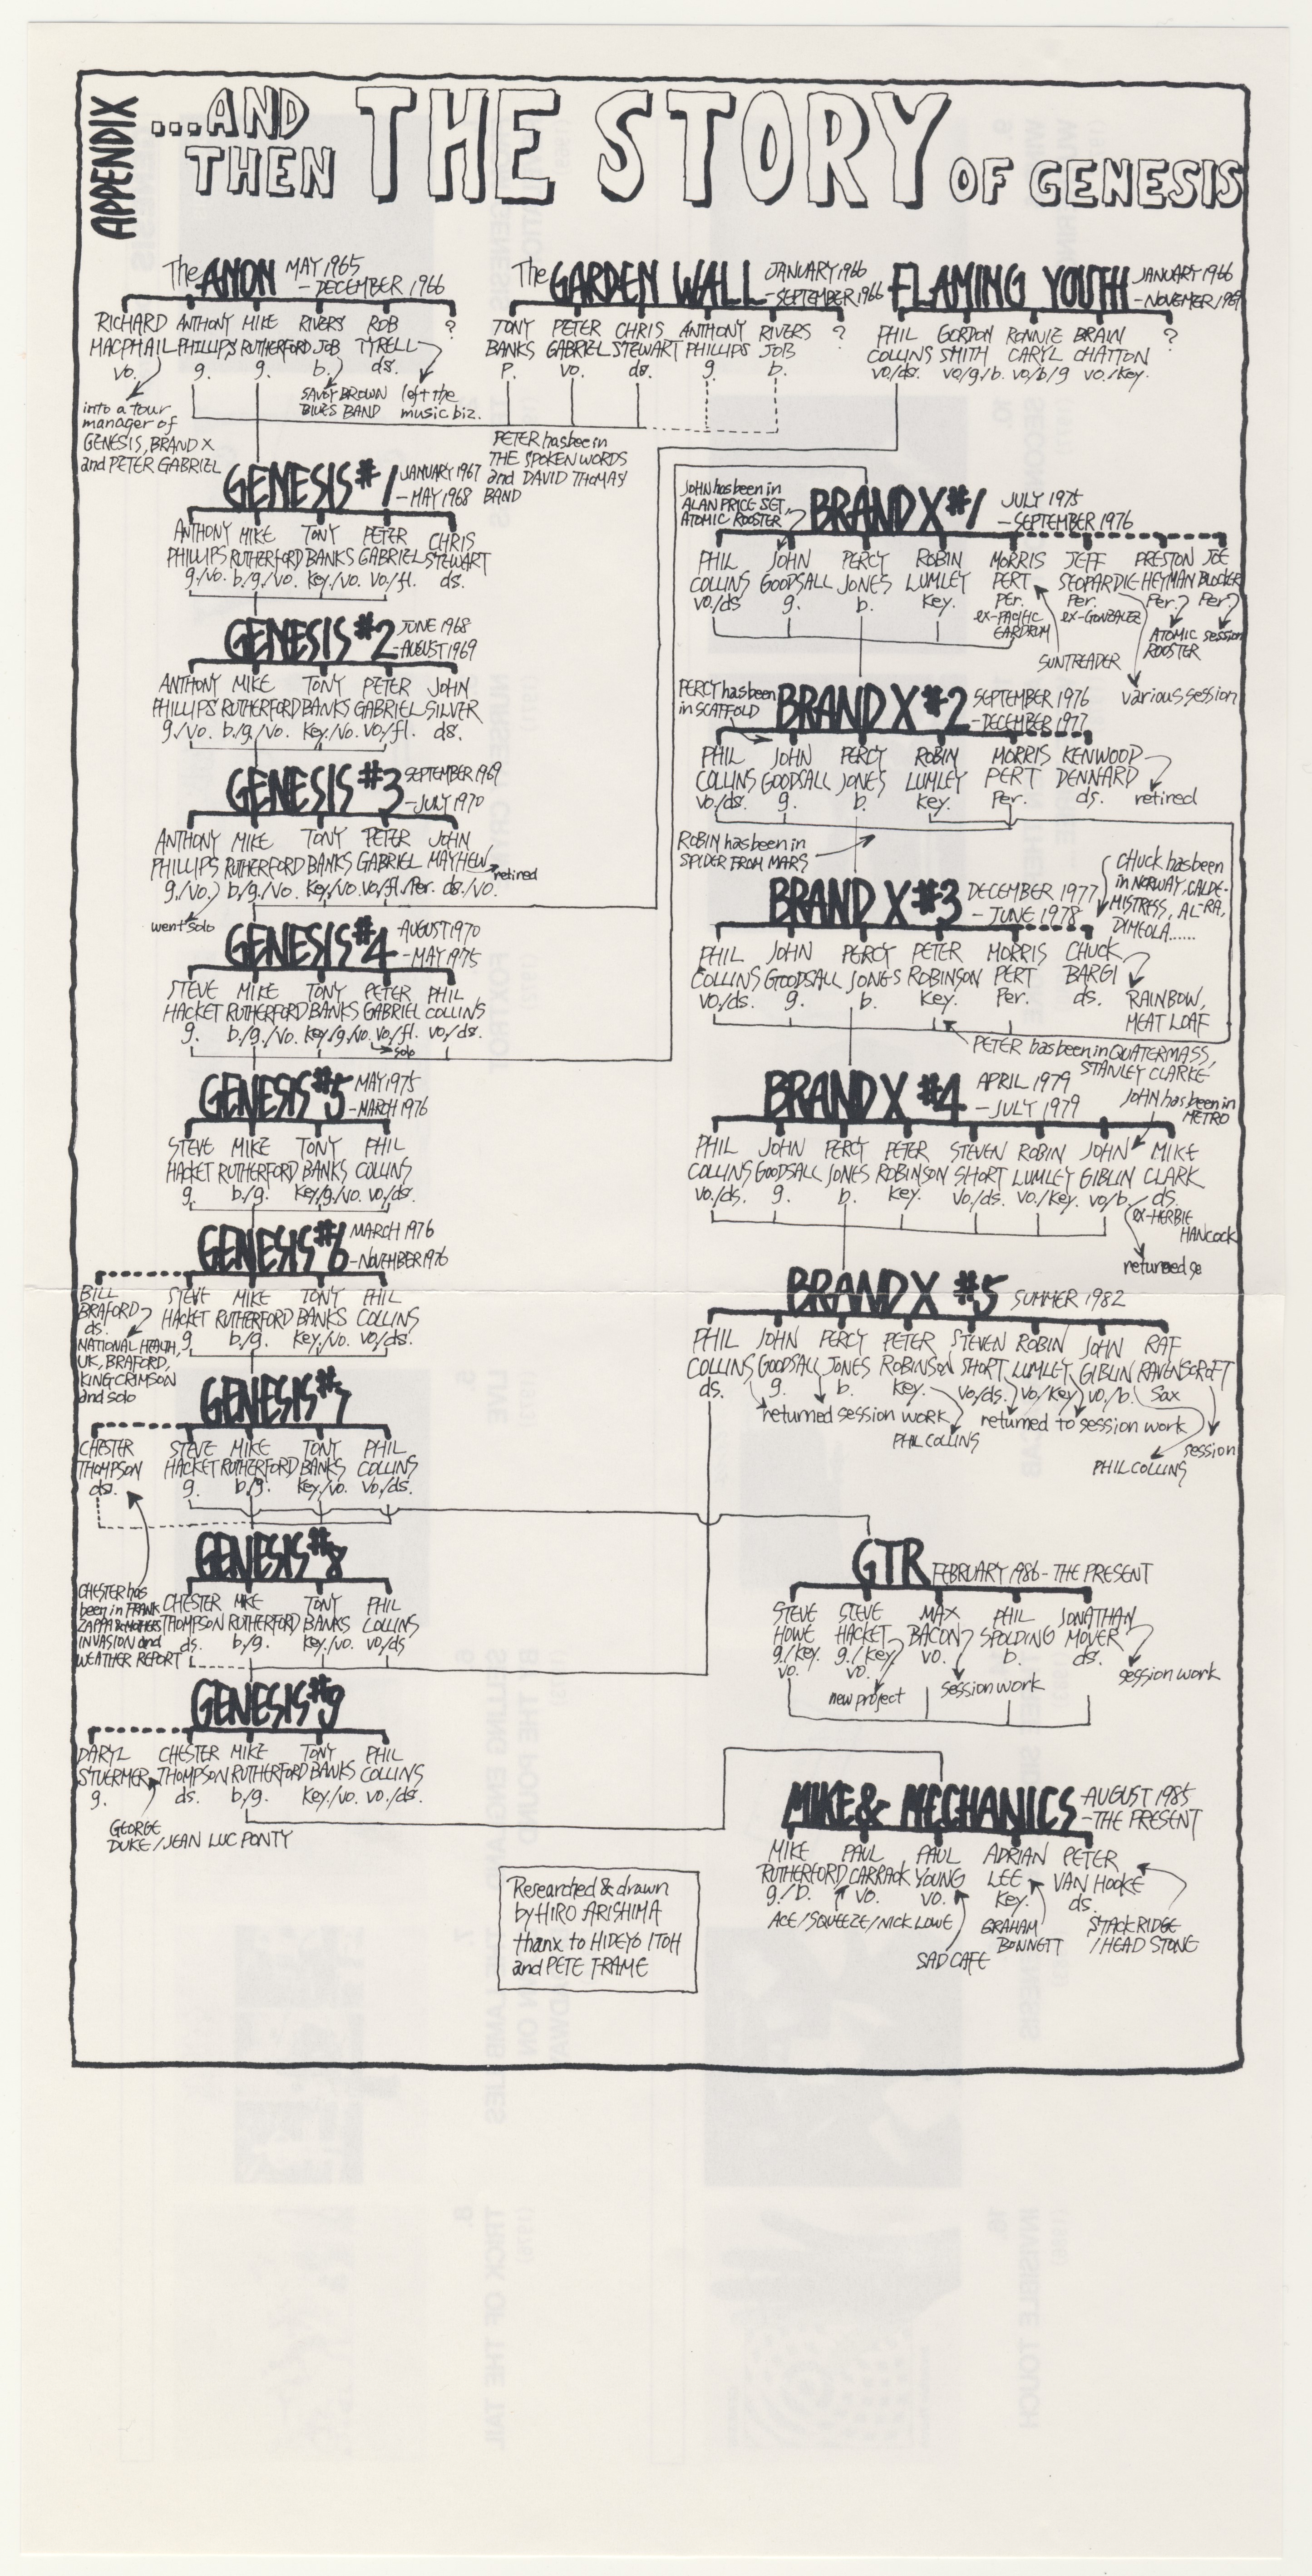 APPENDIX
...AND THEN THE STORY OF GENESIS
The ANON MAY 1965 - DECEMBER 1966
RICHARD MACPHAIL vo.
ANTHONY PHILLIPS g.
MIKE RUTHERFORD g.
RIVERS JOB b.
ROB TYRELL ds.
?
into a tour manager of GENESIS, BRAND X and PETER GABRIEL
SAVOY BROWN BLUES BAND
left the music biz.
The GARDEN WALL JANUARY 1966 - SEPTEMBER 1966
TONY BANKS p.
PETER GABRIEL vo.
CHRIS STEWART ds.
ANTHONY PHILLIPS g.
RIVERS JOB b.
?
PETER has been in THE SPOKEN WORDS and DAVID THOMAS BAND
FLAMING YOUTH JANUARY 1966 - NOVEMER 1969
PHIL COLLINS vo/ds.
GORDON SMITH vo/g/b.
RONNIE CARYL vo/b/g
BRAIN CHATTON vo./key.
?
GENESIS #1 JANUARY 1967 - MAY 1968
ANTHONY PHILLIPS g./vo.
MIKE RUTHERFORD b./g./vo.
TONY BANKS key./vo.
PETER GABRIEL vo/fl.
CHRIS STEWART ds.
GENESIS #2 JUNE 1968 - AUGUST 1969
ANTHONY PHILLIPS g./vo.
MIKE RUTHERFORD b./g./vo.
TONY BANKS key./vo.
PETER GABRIEL vo/fl.
JOHN SILVER ds.
GENESIS #3 SEPTEMBER 1969 - JULY 1970
ANTHONY PHILLIPS g./vo.
MIKE RUTHERFORD b./g./vo.
TONY BANKS key./vo.
PETER GABRIEL vo./fl./Per.
JOHN MAYHEW ds./vo.
retired
went solo
GENESIS #4 AUGUST 1970 - MAY 1975
STEVE HACKET g.
MIKE RUTHERFORD b./g./vo.
TONY BANKS key/g./vo.
PETER GABRIEL vo/fl.
PHIL COLLINS vo./ds.
solo
GENESIS #5 MAY 1975 - MARCH 1976
STEVE HACKET g.
MIKE RUTHERFORD b./g.
TONY BANKS key/g./vo.
PHIL COLLINS vo/ds.
GENESIS #6 MARCH 1976 - NOVEMBER 1976
BILL BRAFORD ds.
STEVE HACKET g.
MIKE RUTHERFORD b/g.
TONY BANKS key./vo.
PHIL COLLINS vo/ds.
NATIONAL HEALTH, UK, BRAFORD, KING CRIMSON and solo
GENESIS #7
CHESTER THOMPSON ds.
STEVE HACKET g.
MIKE RUTHERFORD b./g.
TONY BANKS key./vo.
PHIL COLLINS vo/ds.
GENESIS #8
CHESTER has been in FRANK ZAPPA & MOTHERS INVASION and WEATHER REPORT
CHESTER THOMPSON ds.
MIKE RUTHERFORD b/g.
TONY BANKS key./vo.
PHIL COLLINS vo/ds
GENESIS #9
DARYL STUERMER g.
CHESTER THOMPSON ds.
MIKE RUTHERFORD b/g.
TONY BANKS key./vo.
PHIL COLLINS vo./ds.
GEORGE DUKE / JEAN LUC PONTY
JOHN has been in ALAN PRICE SET, ATOMIC ROOSTER
BRAND X #1 JULY 1975 - SEPTEMBER 1976
PHIL COLLINS vo./ds
JOHN GOODSALL g.
PERCY JONES b.
ROBIN LUMLEY key.
MORRIS PERT Per.
JEFF SEOPARDIE Per.
PRESTON HEYMAN Per.
JOE BLOCKER Per.
ex-PACIFIC EARDRUM
ex-GONZALEZ
ATOMIC ROOSTER
session
SUNTREADER
various session
PERCY has been in SCAFFOLD
BRAND X #2 SEPTEMBER 1976 - DECEMBER 1977
PHIL COLLINS vo/ds.
JOHN GOODSALL g.
PERCY JONES b.
ROBIN LUMLEY key.
MORRIS PERT Per.
KENWOOD DENNARD ds.
retired
ROBIN has been in SPIDER FROM MARS
BRAND X #3 DECEMBER 1977 - JUNE 1978
CHUCK has been in NORWAY, CALDE-MISTRESS, AL-RA, DIMEOLA......
PHIL COLLINS vo/ds.
JOHN GOODSALL g.
PERCY JONES b.
PETER ROBINSON key.
MORRIS PERT Per.
CHUCK BARGI ds.
RAINBOW, MEAT LOAF
PETER has been in QUATERMASS, STANLEY CLARKE
BRAND X #4 APRIL 1979 - JULY 1979
JOHN has been in METRO
PHIL COLLINS vo./ds.
JOHN GOODSALL g.
PERCY JONES b.
PETER ROBINSON key.
STEVEN SHORT vo./ds.
ROBIN LUMLEY vo./key.
JOHN GIBLIN vo/b.
MIKE CLARK ds.
ex-HERBIE HANCOCK
returned se
BRAND X #5 SUMMER 1982
PHIL COLLINS ds.
JOHN GOODSALL g.
PERCY JONES b.
PETER ROBINSON key.
STEVEN SHORT vo/ds.
ROBIN LUMLEY vo/key
JOHN GIBLIN vo./b.
RAF RAVENSCROFT Sax
returned session work
PHIL COLLINS
returned to session work
PHIL COLLINS
session
GTR FEBRUARY 1986 - THE PRESENT
STEVE HOWE g./key. vo.
STEVE HACKET g./key vo.
MAX BACON vo.
PHIL SPOLDING b.
JONATHAN MOVER ds.
new project
session work
session work
MIKE & MECHANICS - AUGUST 1985 - THE PRESENT
MIKE RUTHERFORD g./b.
PAUL CARRACK vo.
PAUL YOUNG vo.
ADRIAN LEE key.
PETER VAN HOOKE ds.
ACE / SQUEEZE / NICK LOWE
SAD CAFE
GRAHAM BONNETT
STACKRIDGE / HEAD STONE
Researched & drawn
by HIRO ARISHIMA
thanx to HIDEYO ITOH
and PETE FRAME